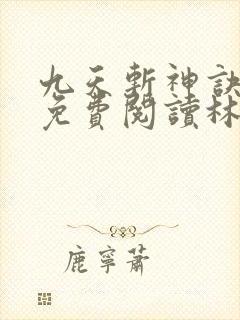 九天斬神訣
免費閱讀林
鹿寧蕭